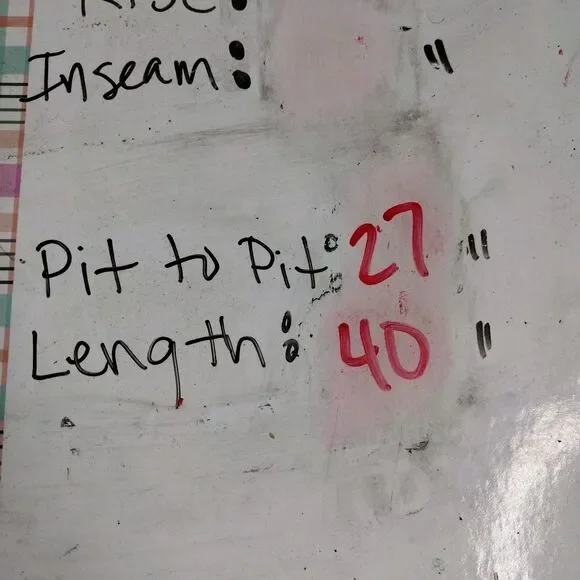 Rise:
Inseam: "
Pit to Pit: 27 "
Length: 40 "